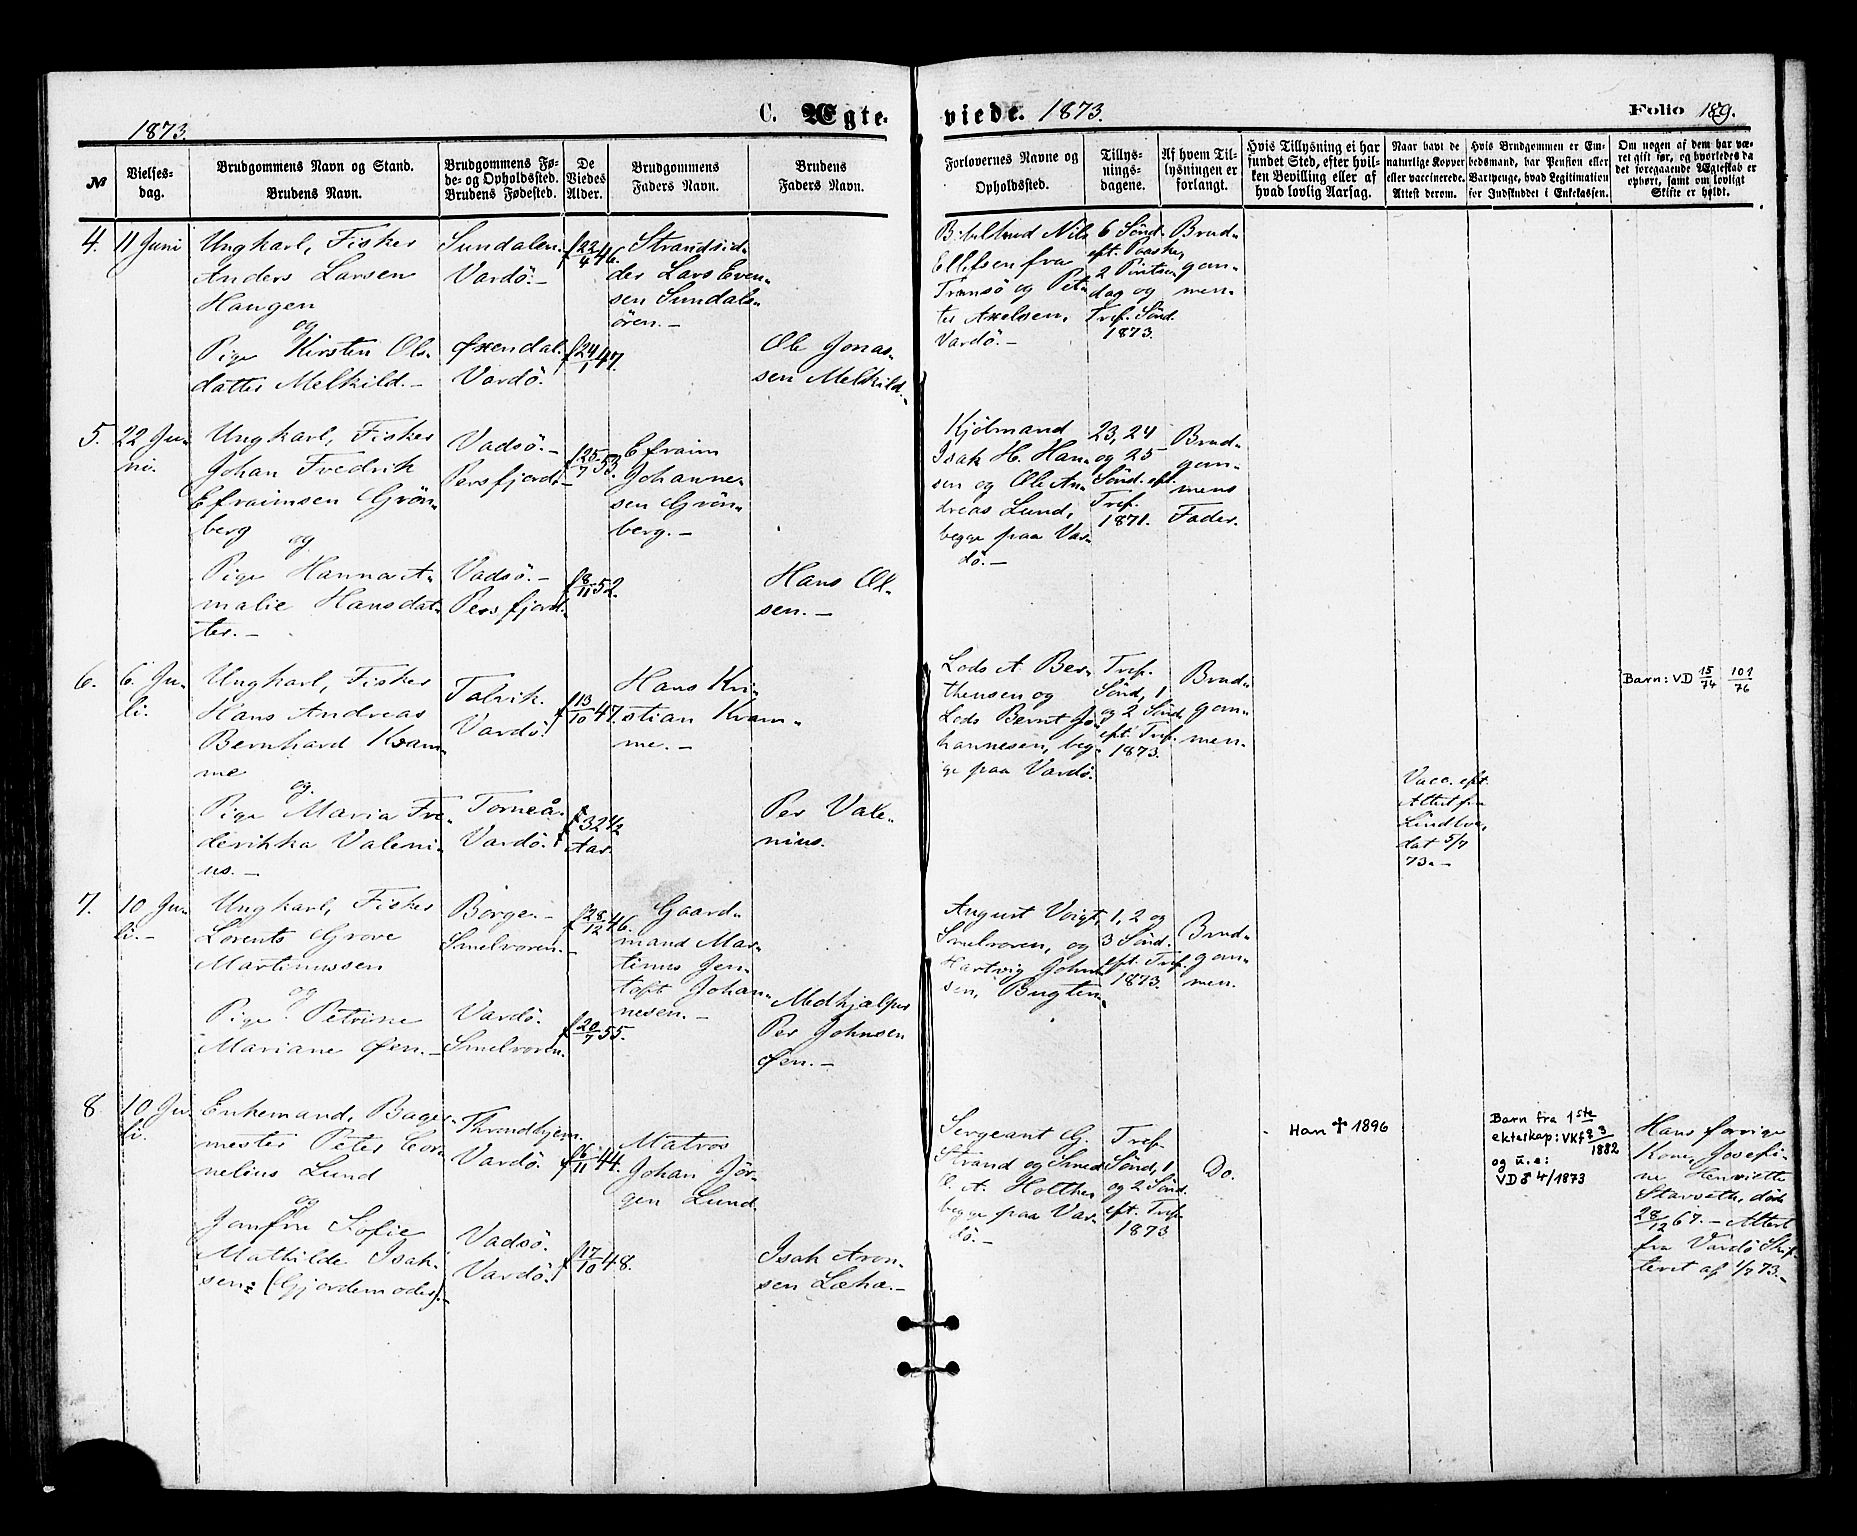 1873.
C. Ægte-
viede. 1873.
Folio 189.
№
Vielses-
dag.
Brudgommens Navn og Stand.
Brudens Navn.
Brudgommens Fø-
de- og Opholdssted.
Brudens Fødested.
De
Viedes
Alder.
Brudgommens
Faders Navn.
Brudens
Faders Navn.
Forlovernes Navne og
Opholdssted.
Tillys-
nings-
dagene.
Af hvem Til-
lysningen er
forlangt.
Hvis Tillysning ei har
fundet Sted, efter hvil-
ken Bevilling eller af
hvad lovlig Aarsag.
Naar havt de
naturlige Kopper
eller vaccinerede.
Attest derom.
Hvis Brudgommen er Em-
bedsmand, har Pension eller
Vartpenge, hvad Legitimation
for Indskuddet i Enkekassen.
Om nogen af dem har væ-
ret gift før, og hvorledes da
det foregaaende Ægteskab er
ophørt, samt om lovligt
Skifte er holdt.
4.
11 Juni
Ungkarl, Fisker
Anders Larsen
Haugen
og
Pige Kirsten Ols-
datter Melkild.-
Sundalen.
Vardö.-
Øxendal.
Vardö.
f 22/4 46.
f 24/1 47.
Strandsid-
der Lars Even-
sen Sundals-
ören.-
Ole Jonas-
sen Melkild.-
Nils
Ellefsen fra
Tromsö og Pet-
ter Axelsen,
Vardö.-
6 Sönd.
eft. Paaske,
2 Pintse-
dag og
Tref. Sönd.
1873.
Brud-
gom-
men.
5.
22 Ju-
ni.
Ungkarl, Fisker
Johan Fredrik
Efraimsen Grön-
berg
og
Pige Hanna A-
malie Hansdat-
ter.-
Vadsö.-
Persfjord.-
Vadsö.-
Persfjord.
f 25/7 53.
f 8/11 52.
Efraim
Johanne-
sen Grön-
berg.-
Hans Ol-
sen.-
Kjölmand
Isak H. Han-
sen og Ole An-
dreas Lund,
begge paa Var-
dö.-
23, 24
og 25
Sönd. eft.
Tref.
1871.
Brud-
gom-
mens
Fader.
6.
6. Ju-
li.
Ungkarl, Fisker
Hans Andreas
Bernhard Kram-
me
og
Pige Maria Fre-
derikka Valeni-
us.-
Talvik.
Vardö.
Torneå.
Vardö.
f 13/10 47.
f 32 1/2
Aar.
Hans Kri-
stian Kram-
me.-
Per Vale-
nius.
Lods A. Ber-
thensen og
Lods Bernt Jo-
hannesen, beg-
ge paa Vardö.
Tref.
Sönd, 1
og 2 Sönd,
eft. Tref.
1873.
Brud-
gom-
men.
Vacc. eft.
Attest fra
dat 5/7
73.-
Barn: VD 15/74 101/76
7.
10 Ju-
li.-
Ungkarl, Fisker
Lorents Grove
Martinussen
og
Pige Petrine
Mariane Øen.-
Borgen-
Smelroren.-
Vardö.
Smelroren.
f 28/12 46.
f 20/7 55.
Gaard-
mand Mar-
tinus Jen-
toft Johan-
nesen.-
Medhjælper
Per Johnsen
Øen.-
August Voigt,
Smelroren, og
Hartvig John-
sen, Bugten.
1, 2 og
3 Sönd.
eft. Tref.
1873.
Brud-
gom-
men.
8.
10 Ju-
li.
Enkemand, Bager-
mester Peter Cor-
nelius Lund
og
Jomfru Sofie
Mathilde Isak-
sen: (Gjordemoder).-
Throndhjem.
Vardö.
Vadsö.
Vardö.
f 16/11 44.
f 17/10 48.
Matros
Johan Jör-
gen Lund
Isak Aron-
sen Læhæ.-
Sergeant G.
Strand og Smed
O. A. Holther
begge paa Var-
dö.-
Tref.
Sönd, 1
og 2 Sönd.
eft. Tref.
1873
Do.
Han ✝ 1896
Barn fra 1ste
ekteskap: VKf♀ 3/1882
og u.e:
VD♂ 4/1873
Hans forrige
Kone, Josefi-
ne Henriette
Starseth, död
28/12 67.- Attest
fra Vardö Skif-
teret af 1/7 73.-